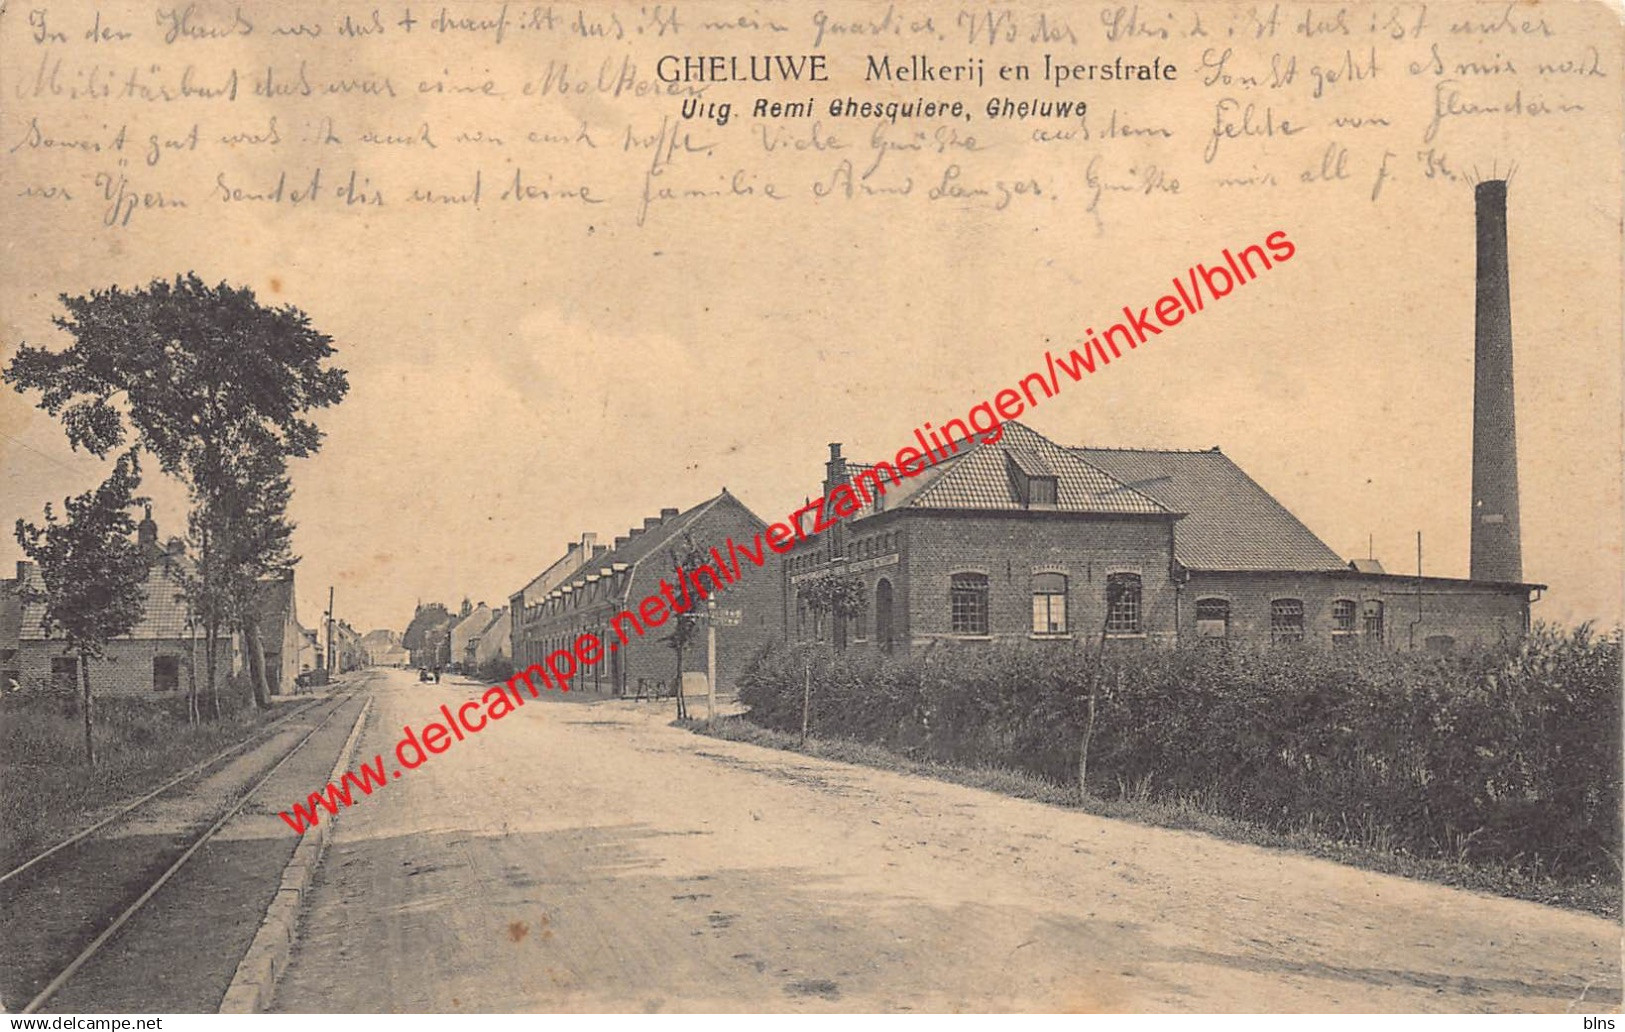 In den Haus wo das + drauf ist das ist mein Quartier. Wo der Strich ist das ist unser
Militärbad das war eine Molkerei Sonst geht es mir noch
soweit gut was ich auch von euch hoffe. Viele Grüße aus dem Felde von Flandern
vor Ypern sendet dir und deine Familie Arno Langer. Grüße mir all F. K.
GHELUWE Melkerij en Iperstrate
Uitg. Remi Ghesquiere, Gheluwe
www.delcampe.net/nl/verzamelingen/winkel/blns
www.delcampe.net
blns